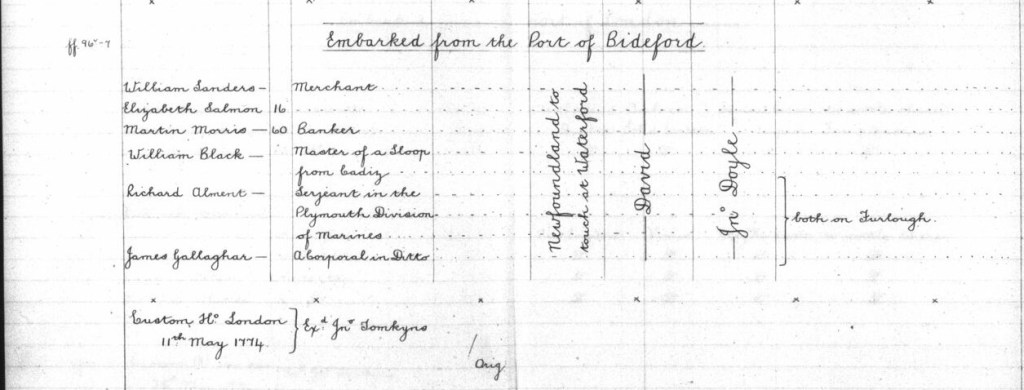 ff. 96-7
Embarked from the Port of Bideford.
William Sanders — Merchant
Elizabeth Salmon 16
Martin Morris — 60 Banker
William Black — Master of a Sloop
from Cadiz
Richard Alment — Serjeant in the
Plymouth Division
of Marines
James Gallaghar — A Corporal in Ditto
Newfoundland to
touch at Waterford
David
Jnº Doyle
both on Furlough.
Custom Hº London
11th May 1774.
Exd Jnº Tomkyns
Orig